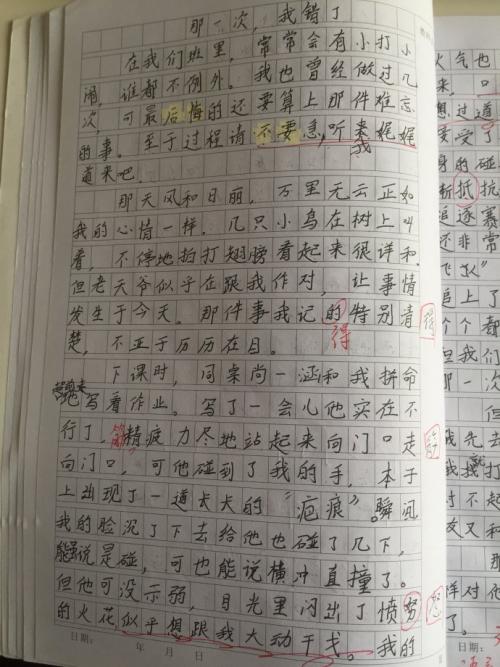 那一次，我错了
在我们班里，常常会有小打小
闹，谁都不例外。我也曾经做过几
次，可最后悔的还要算上那件难忘
的事。至于过程请不要急，听来娓娓
我
道来吧。
那天风和日丽，万里无云正如
我的心情一样。几只小鸟在树上叫
着，不停地拍打翅膀看起来很详和
但老天爷似乎在跟我作对，让事情
发生于今天。那件事我记的特别清
得
得
楚，不亚于历历在目。
下课时，同桌尚一涵和我拼命
地写着作业。写了一会儿他实在不
行了，精疲力尽地站起来向门口走
向门口，可他碰到了我的手，本子
上出现了一道长长的“疤痕”。瞬间
我的脸沉了下去给他也碰了几下，
虽说是碰，可也能说横冲直撞了。
但他可没示弱，目光里闪出了愤努
怒
的火花似乎想跟我大动干戈。我的
日期：
年 月 日
火气也
来，口
想，过道
要受了
身的碰
抵抗
追逐
还非常
飞
追上了
个个都
但我们
那一次
但
我先去
我找打
对不起
那
样对他
日期：